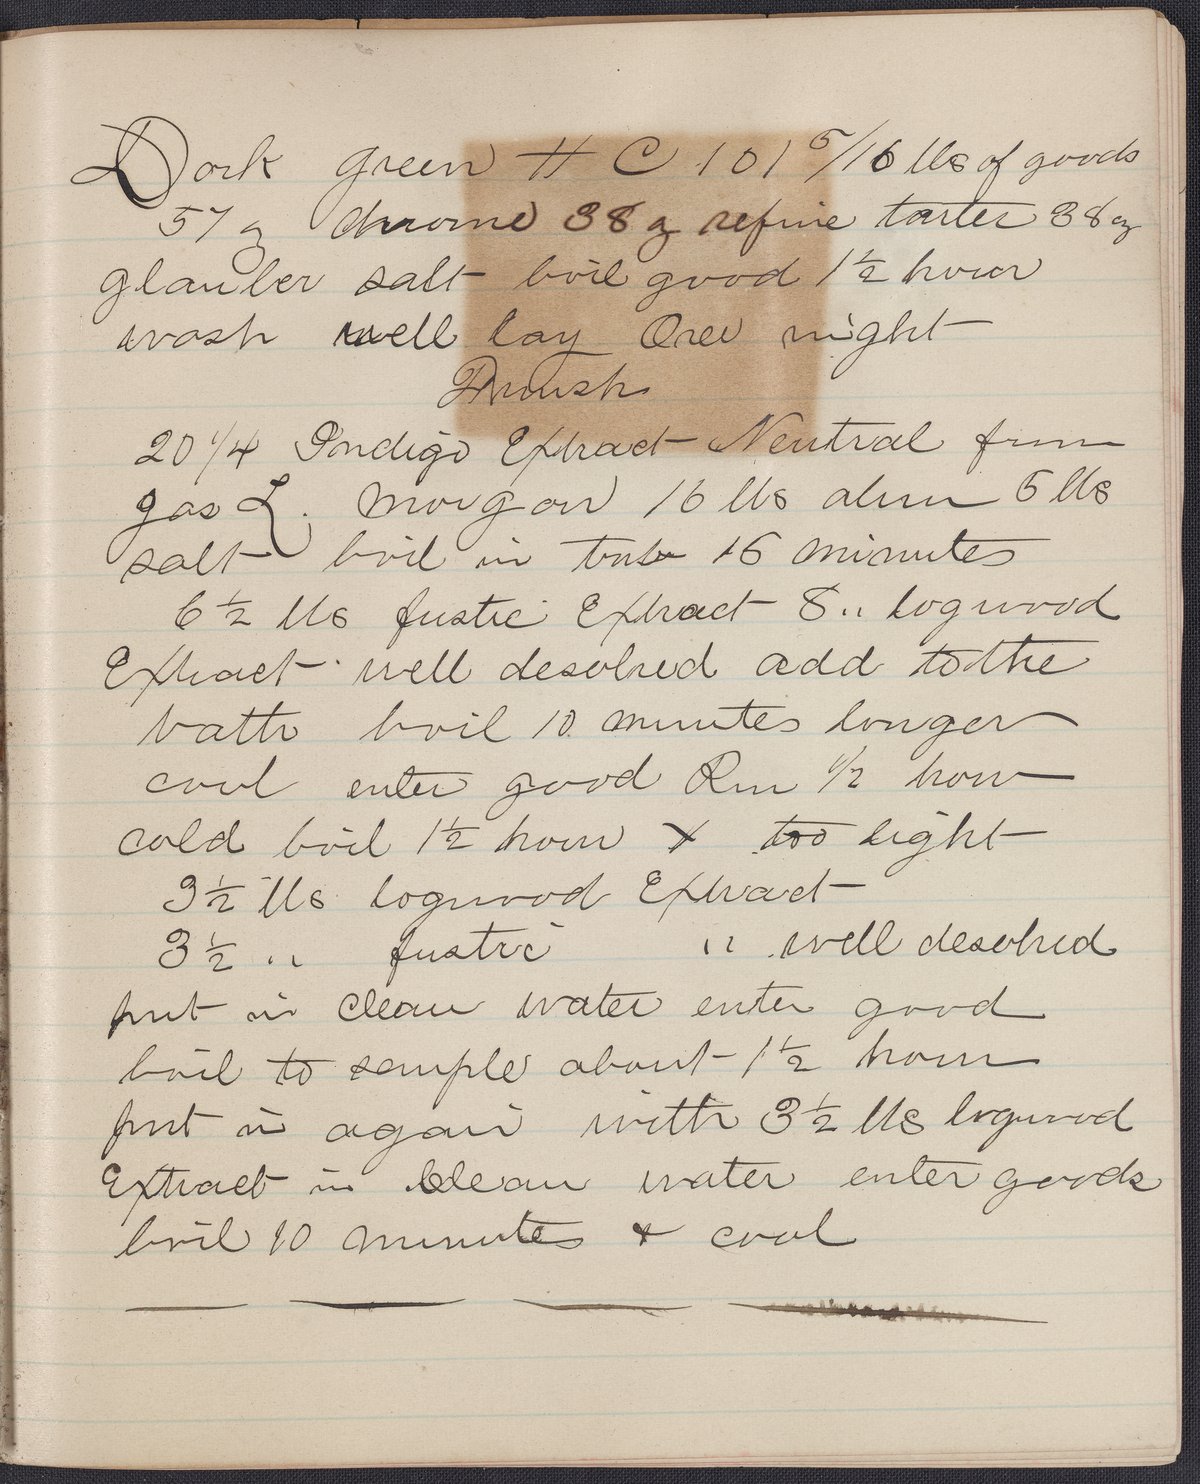 Dark green H C 101 5/16 lbs of goods
57 oz chrome 38 oz refine tarter 38 oz
glauber salt boil good 1 1/2 hour
wash well lay over night
Finish
20 1/4 Indigo Extract Neutral from
Morgan 16 lbs alum 5 lbs
salt boil in tub 15 minutes
6 1/2 lbs fustic Extract 8 " logwood
Extract well desolved add to the
bath boil 10 minutes longer
cool enter good Run 1/2 hour
cold boil 1 1/2 hour x too light
3 1/2 lbs logwood Extract
3 1/2 " fustic " well desolved
put in clean water enter good
boil to sample about 1 1/2 hour
put in again with 3 1/2 lbs logwood
Extract in clean water enter goods
boil 10 minutes & cool